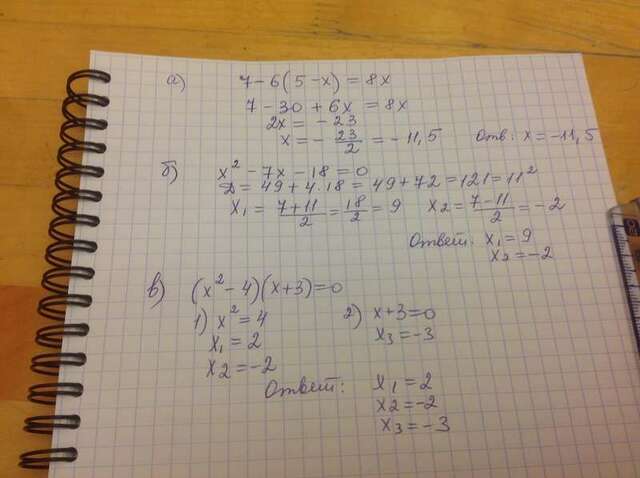 а) 7 - 6(5 - x) = 8x
7 - 30 + 6x = 8x
2x = - 23
x = - 23/2 = - 11,5 Отв: x = -11,5
б) x² - 7x - 18 = 0
D = 49 + 4·18 = 49 + 72 = 121 = 11²
x₁ = 7+11/2 = 18/2 = 9 x₂ = 7-11/2 = -2
Ответ: x₁ = 9
x₂ = -2
в) (x² - 4)(x + 3) = 0
1) x² = 4 2) x + 3 = 0
x₁ = 2 x₃ = -3
x₂ = -2
Ответ: x₁ = 2
x₂ = -2
x₃ = -3